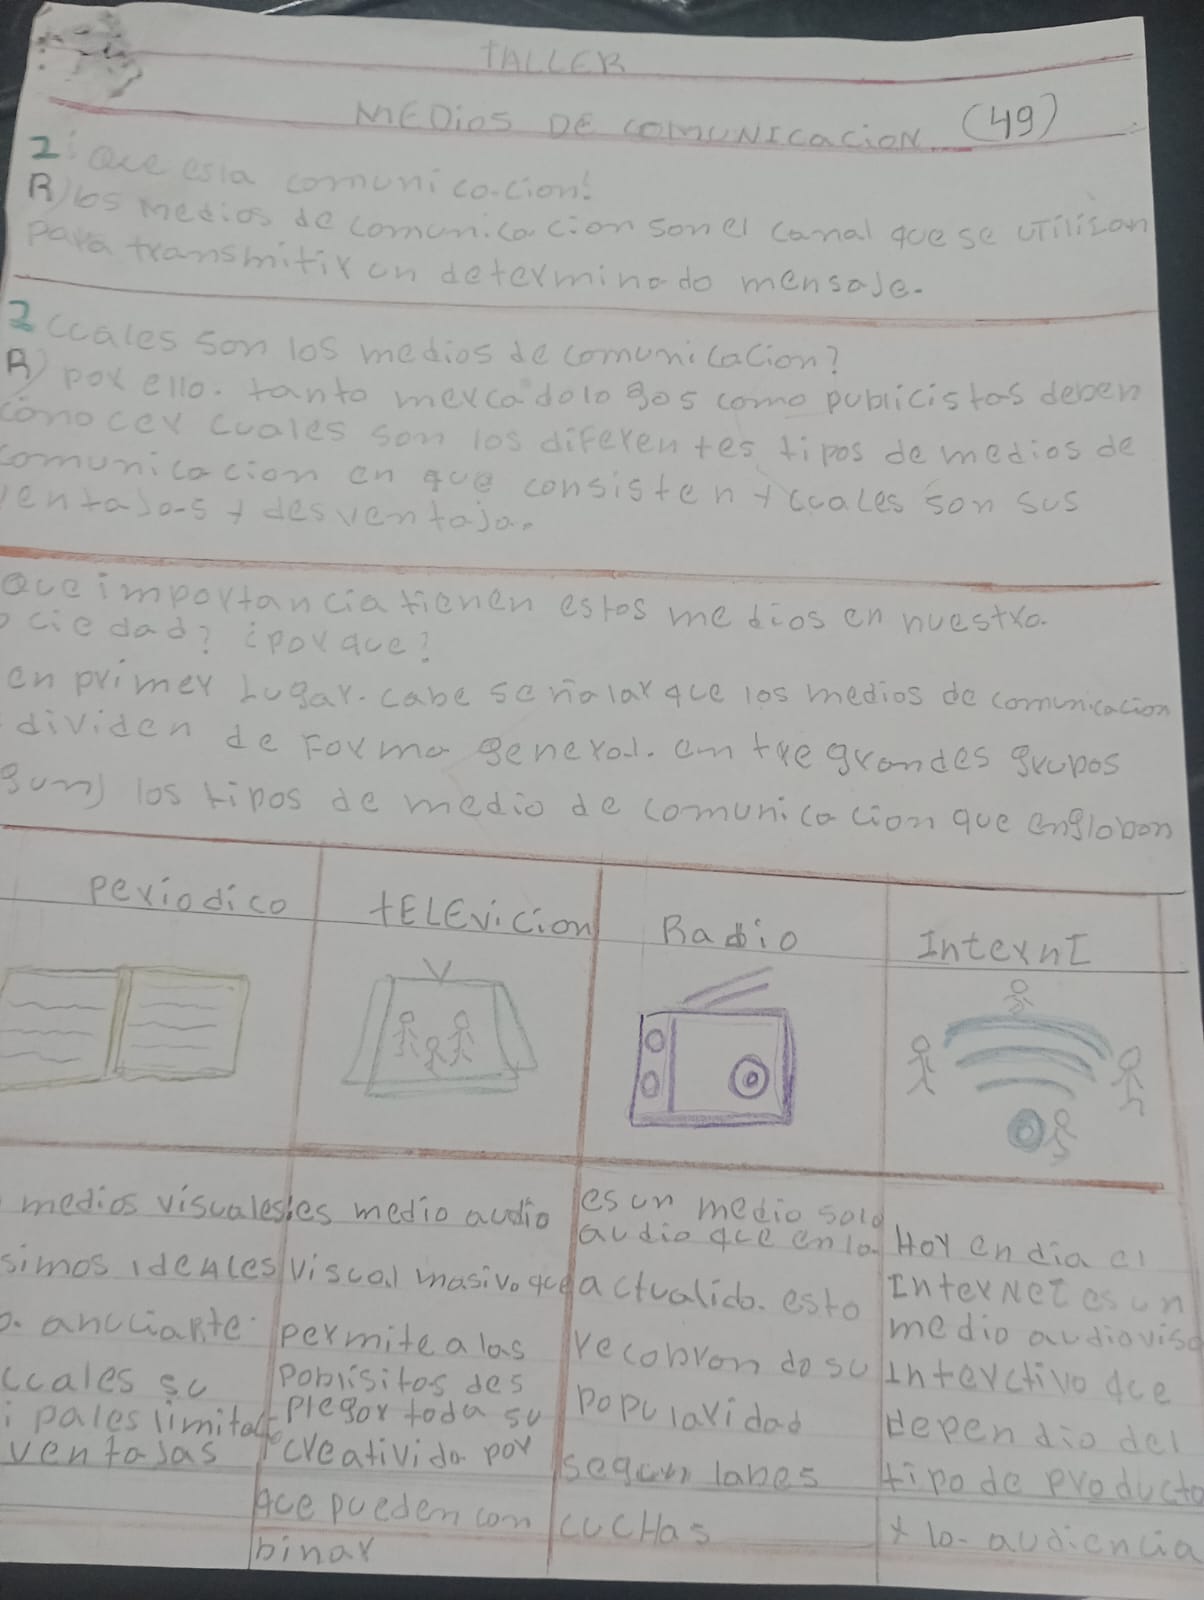 TALLER
MEDiOS DE COMUNICACiON (49)
2 Que es la comunicacion?
R) los medios de comunicacion son el canal que se utilizan
para transmitir un determinado mensaje.
2 ccales son los medios de comunicacion?
R) por ello. tanto mercadologos como publicistas deben
conocer cuales son los diferentes tipos de medios de
comunicacion en que consisten y ccales son sus
ventajas y desventaja.
Que importancia tienen estos medios en nuestra.
ociedad? ¿porque?
en primer Lugar. cabe señalar que los medios de comunicacion
dividen de Forma general. en tre grandes grupos
gun) los tipos de medio de comunicacion que engloban
periodico
tELEvicion
Radio
InternI
medios visuales
simos ideales
o. anuciante
ccales su
ipales limitac
ventajas
es medio audio
viscal masivo que
permite a las
poblisitos des
plegar toda su
creativida por
que pueden con
binar
es un medio solo
audio que en la
actualida. esto
recobrando su
popularidad
segun lanes
cucHas
Hoy en dia el
InterNet es un
medio audiovisa
interctivo que
dependio del
tipo de producto
y lo audiencia